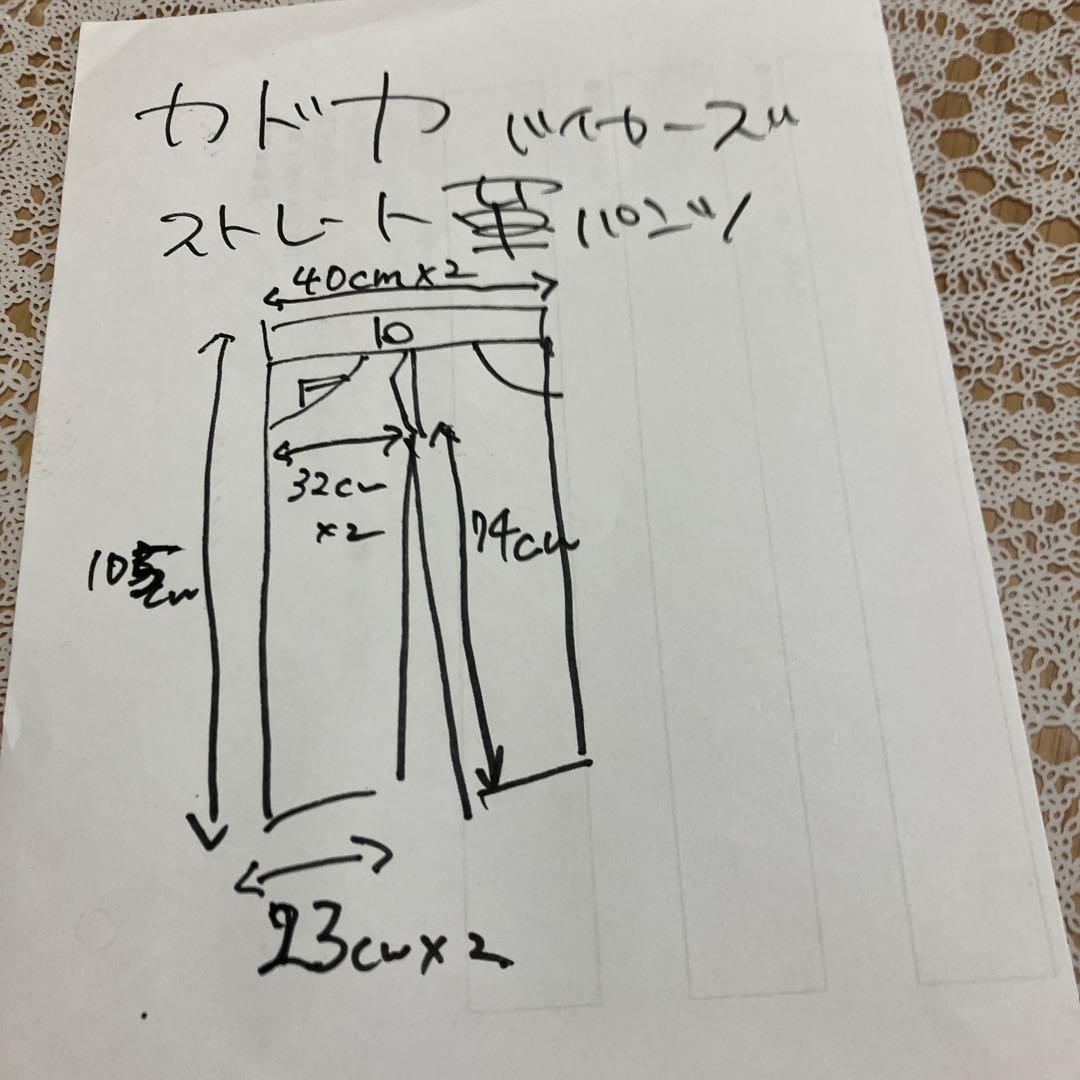 カドヤ バイカーズ
ストレート 革 パンツ
40cm×2
10
32cm
×2
74cm
23cm×2